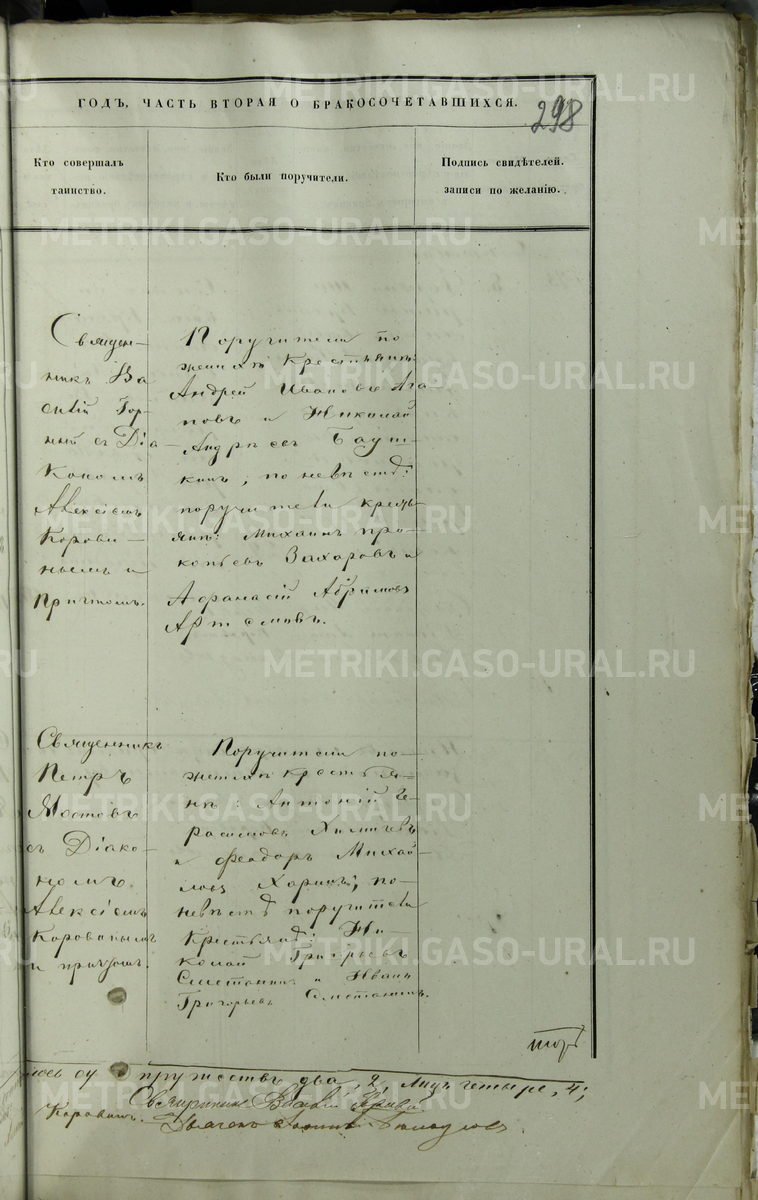 ГОДЪ, ЧАСТЬ ВТОРАЯ О БРАКОСОЧЕТАВШИХСЯ.
298
Кто совершалъ
таинство.
Кто были поручители.
Подпись свидѣтелей.
записи по желанію.
Священ-
никъ Ва
силій Гор
ный съ Діа
кономъ
Алексіемъ
Корови-
нымъ и
Причтомъ.
Поручители по
женихѣ крестьяне:
Андрей Ивановъ Ага
повъ и Николай
Андреевъ
кинъ, по невѣстѣ:
поручители кресть
яне: Михаилъ Про-
копьевъ Захаровъ и
Афанасій Абрамовъ
Артемовъ.
Священникъ
Петръ
Мостовъ
съ Діако-
номъ
Алексіемъ
Коровинымъ
и причтомъ.
Поручители по
женихѣ крестья-
не: Антоній Ге-
расимовъ
и Феодоръ Михай-
ловъ по-
невѣстѣ поручители
Крестьяне: Ни-
колай Григорьевъ
Сметанинъ и Иванъ
Григорьевъ Сметанинъ.
супружествъ два, 2, лицъ четыре, 4;
Священникъ
Коровинъ.
METRIKI.GASO-URAL.RU